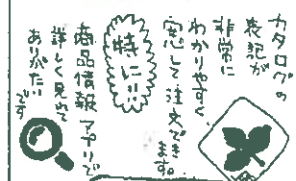 カタログの
表記が
非常に
わかりやすく
安心して注文でき
ます。
特に!!
商品情報アプリで
詳しく見れて
ありがたい
です